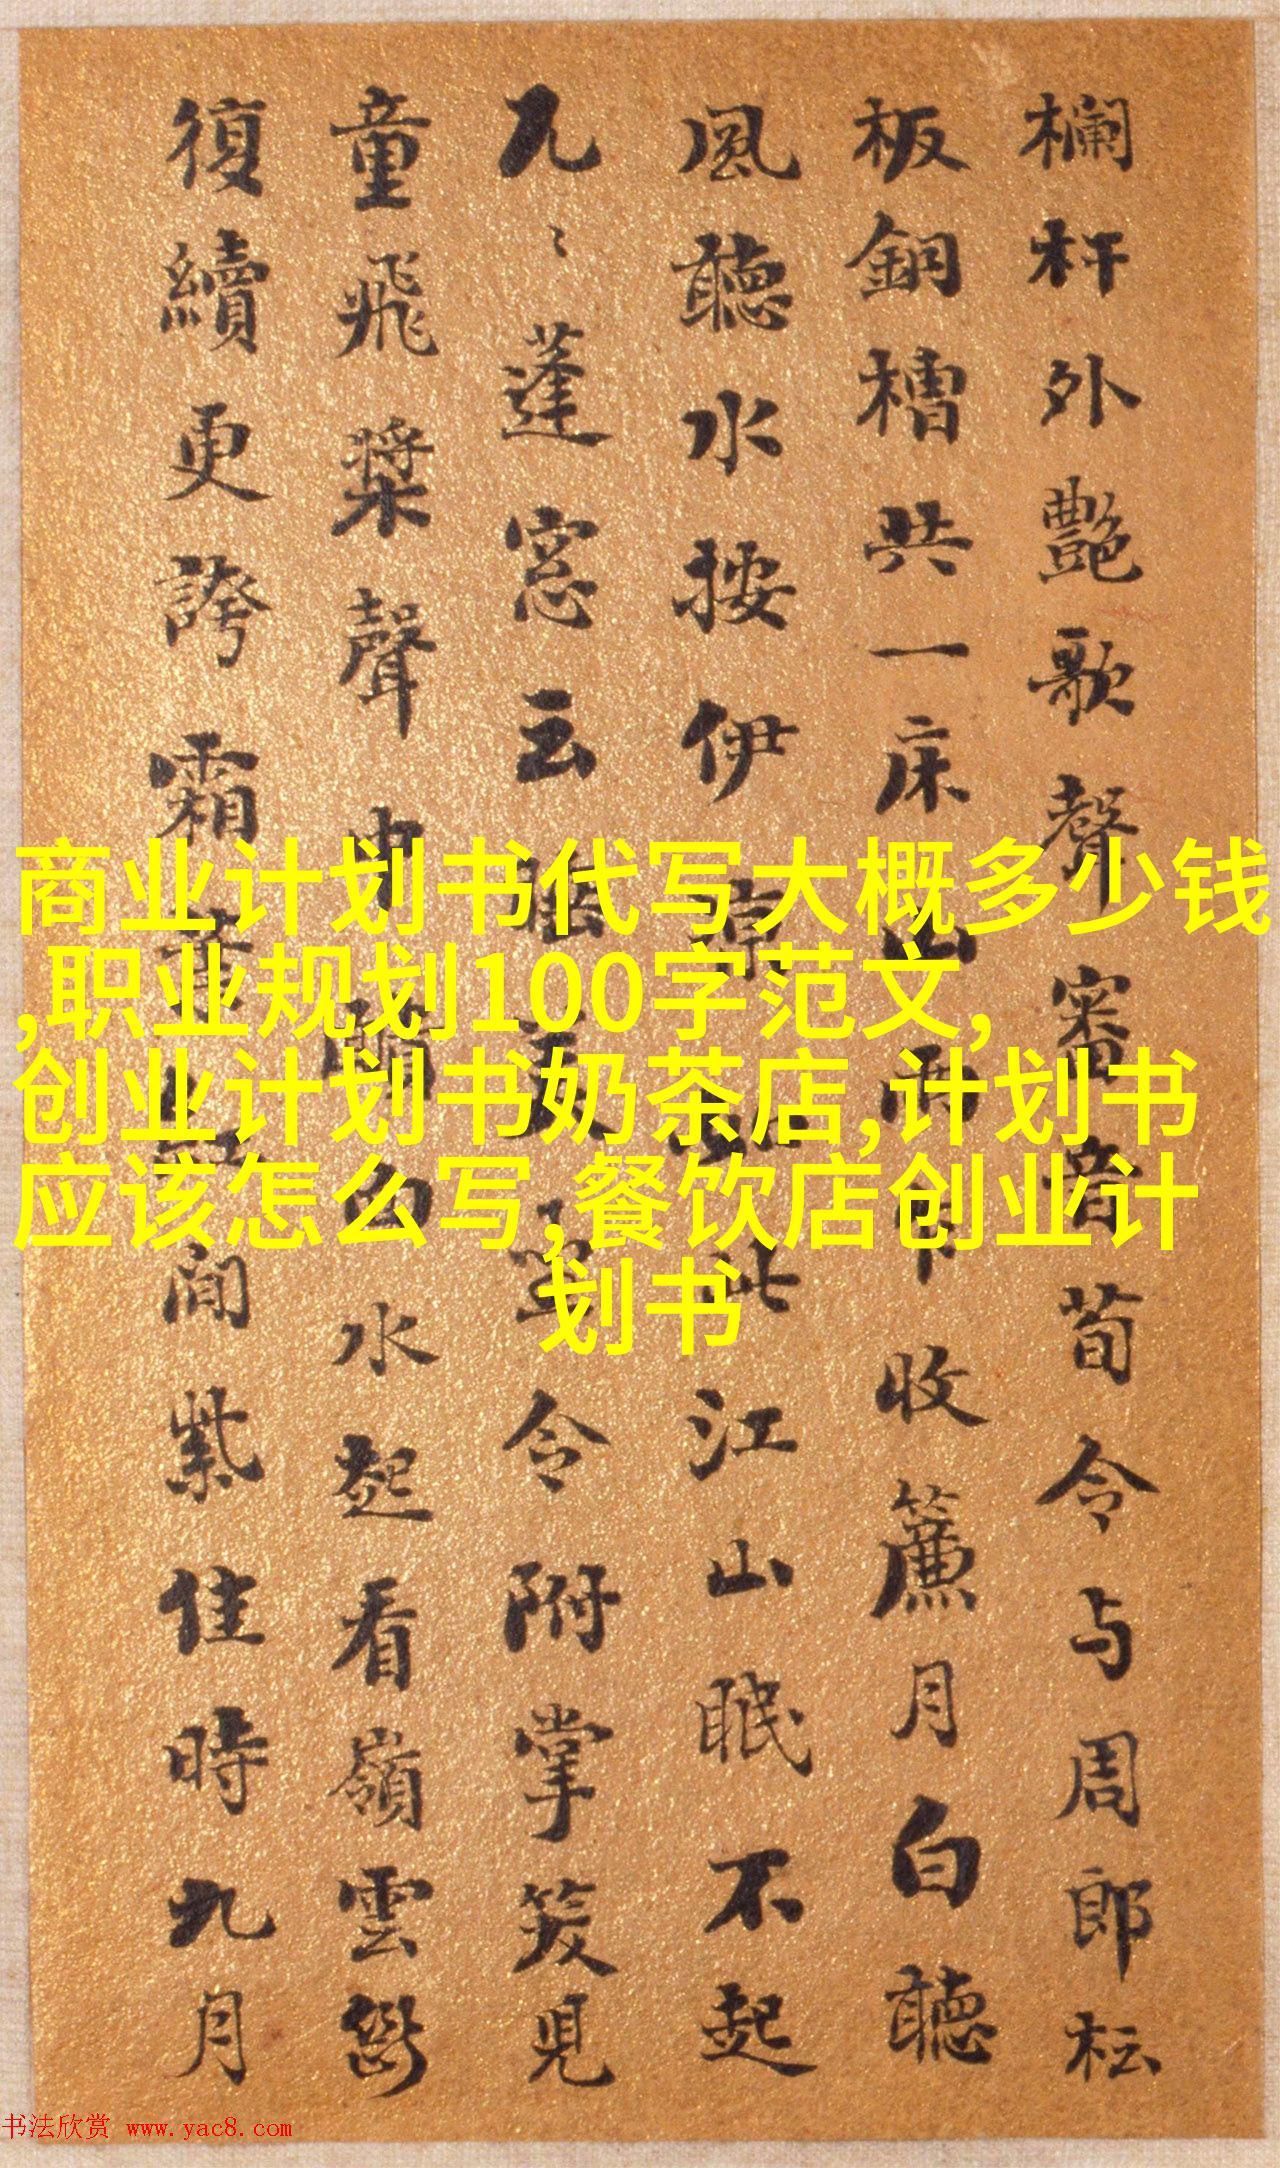 欄杆外艷歌聲審音荀令与周郎杺
板銅槽共一床山雨下收簾月白聽
風聽水按伊涼如此江山眠不起
九〻蓬窓云臥美里令附掌笑見
童飛槳聲中醉白水起看嶺雲勞
復續更誇霜葉紅间紫佳時九月
商业计划书代写大概多少钱
,职业规划100字范文,
创业计划书奶茶店,计划书
应该怎么写,餐饮店创业计
划书
书法欣赏 www.yac8.com